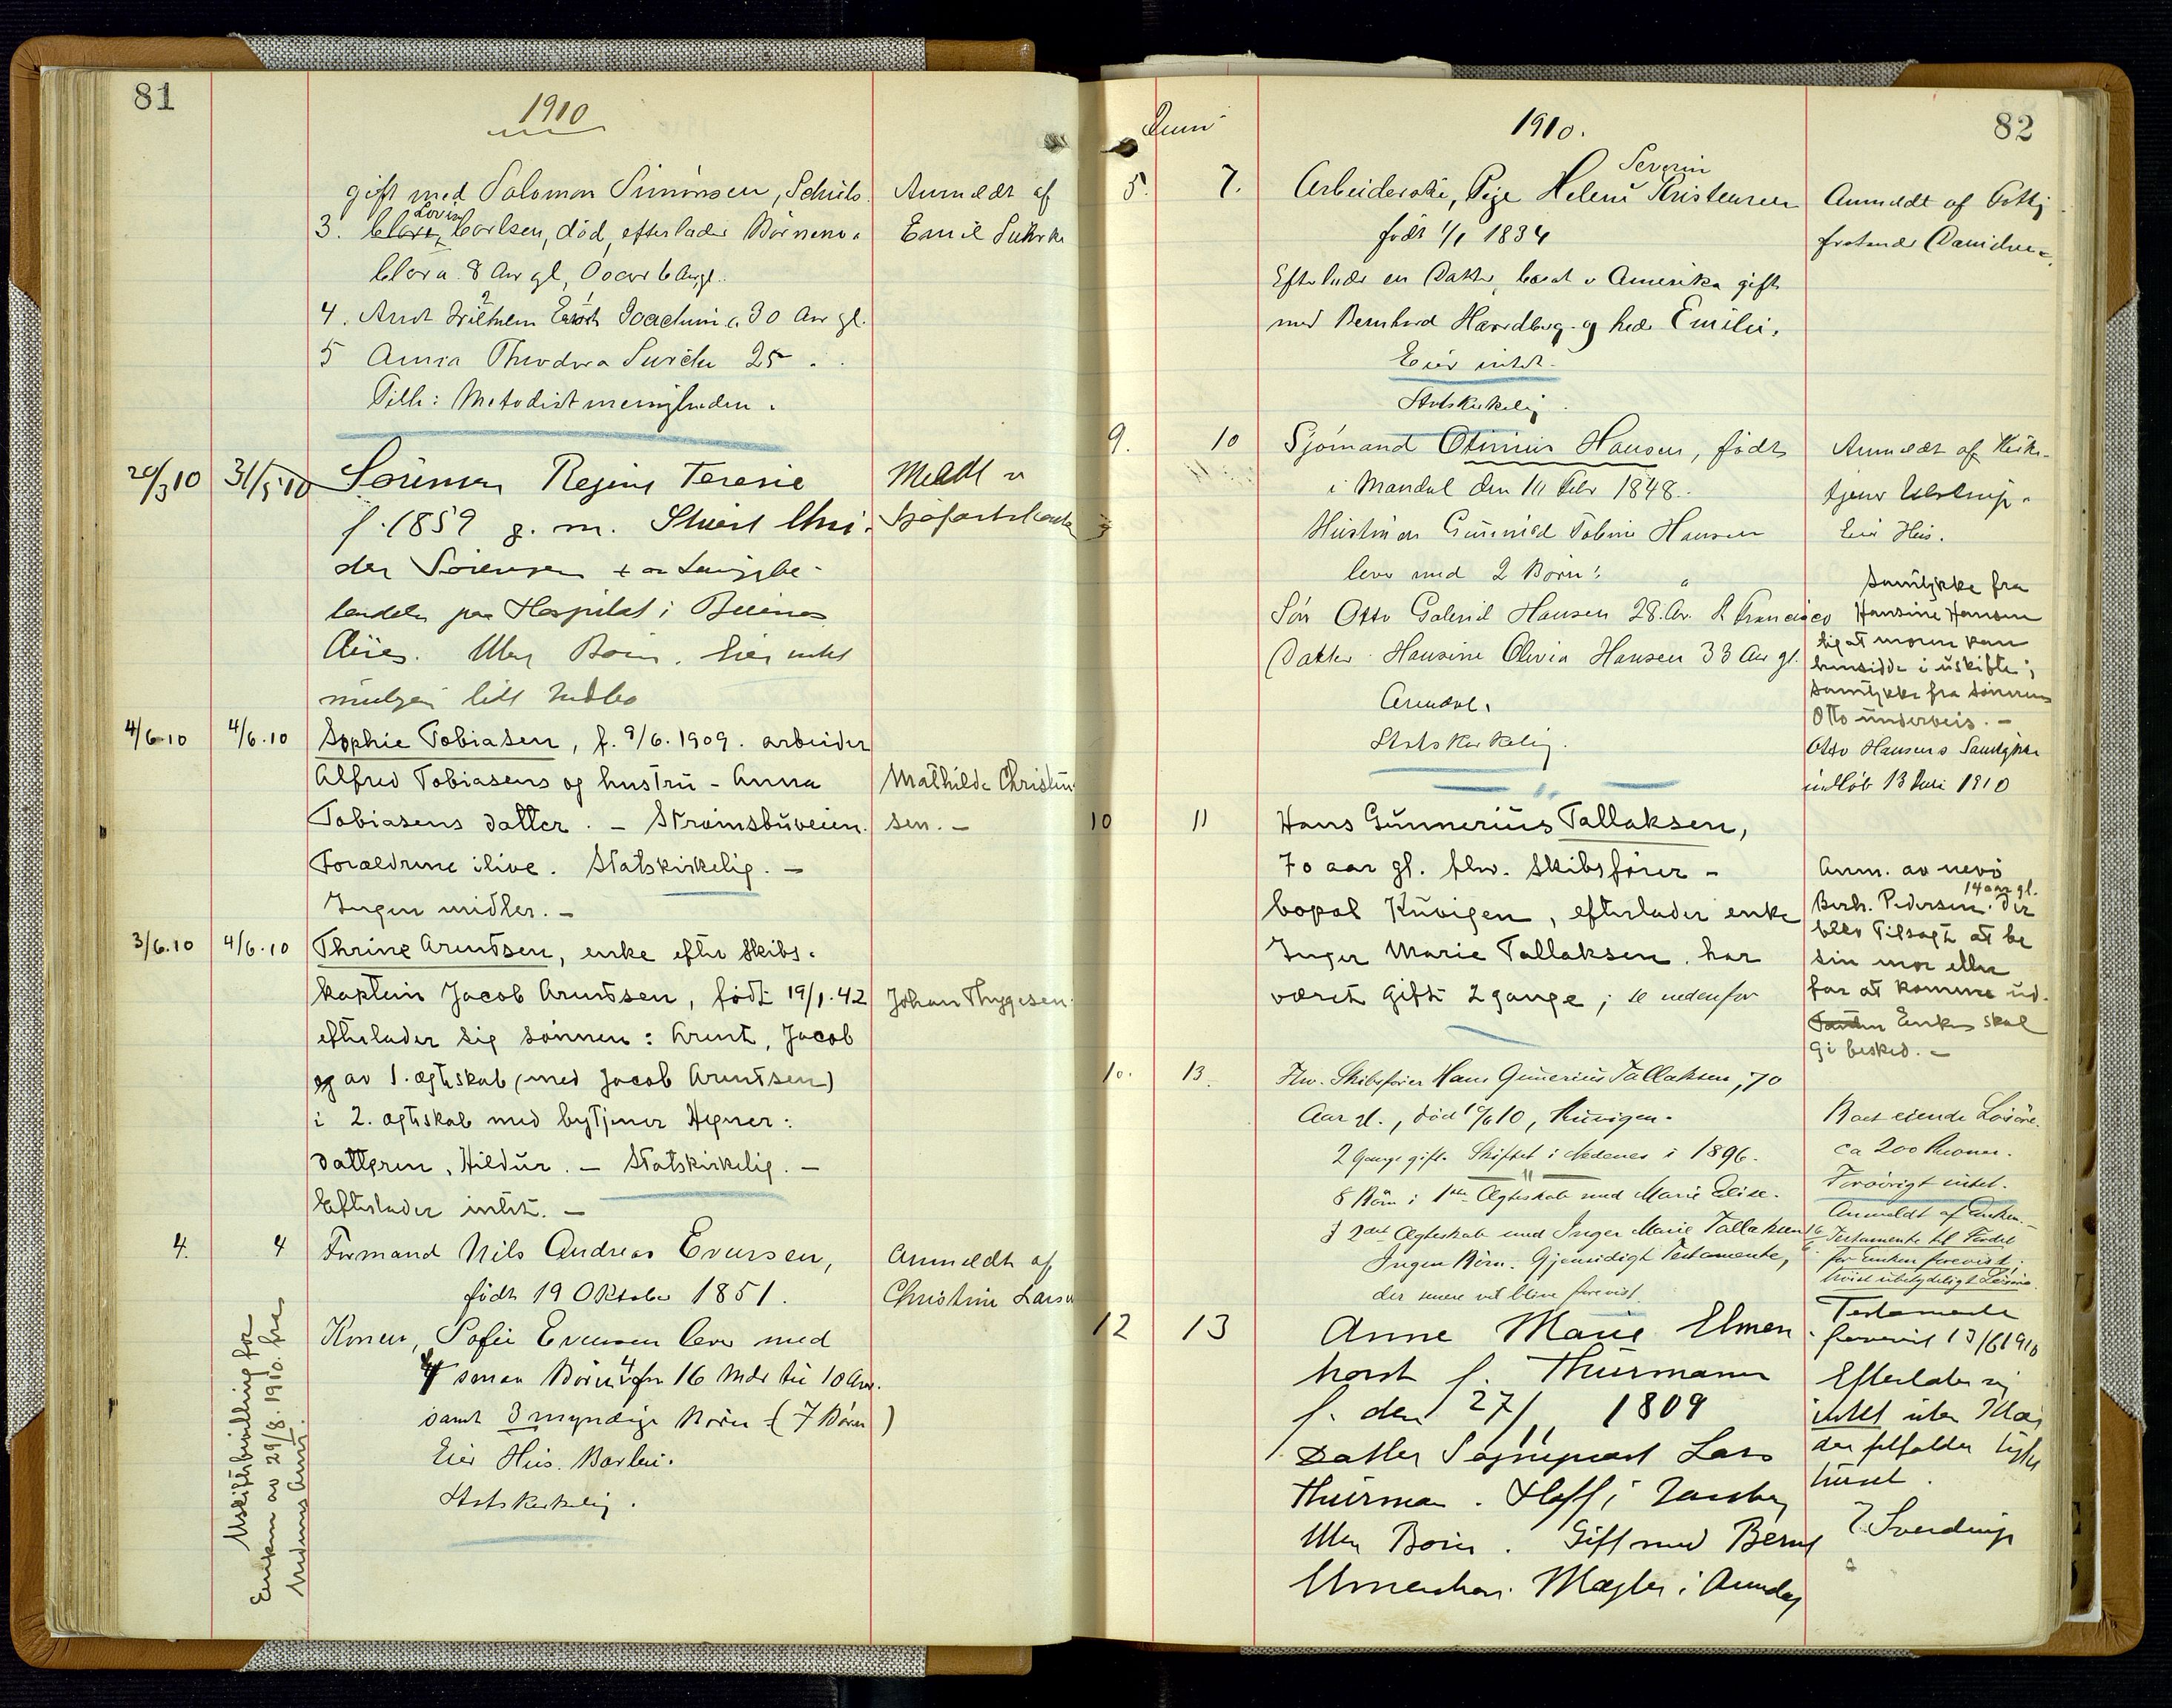 81
1910
gift med Salomon Simonsen,
Anmeldt af
3. Clara Lovise Carlsen, død, efterlader Børnene
Emil
Clara 8 Aar gl, Oscar 6 Aar gl.
4. Arnt Wilhelm Ernst Joachim c. 30 Aar gl.
5 Anna Theodora 25
Tilh: Metodistmenigheden.
20/3 10 31/5 10 Sörensen Regine Teresie
Meldt v
f. 1859 g. m.
der Sörensen
paa Hospital i Buenos
Aires. Uden Børn. Eier intet
muligens litt Indbo
4/6.10 4/6.10 Sophie Tobiasen, f. 9/6. 1909. arbeider
Alfred Tobiasens og hustru - Anna
Mathilde Christen-
Tobiasens datter. - Strømsbuveien.
sen. -
Forældrene ilive. Statskirkelig. -
Ingen midler. -
3/6.10 4/6.10 Thrine Arntsen, enke efter Skibs-
kaptein Jacob Arntsen, født 19/1.42
Johan Thygesen.
efterlader sig sønnen: Arent, Jacob
og av 1. egteskab (med Jacob Arntsen)
i 2. egteskab med bytjener Hegner:
datteren, Hildur. - Statskirkelig. -
Efterlader intet. -
4. 4 Formand Nils Andreas Evensen,
Anmeldt af
født 19 Oktober 1851.
Christine Larsen
Konen, Sofie Evensen lever med
4 smaa Børn fra 16 Mdr til 10 Aar.
samt 3 myndige Børn (7 Børn)
Eier Hus. Barbu.
Statskirkelig.
Uskiftebevilling for
Enken av 29/8. 1910 fra
Nedenes Amt.
82
Juni
1910.
5. 7. Arbeiderske, Pige Helene Severin Kristensen
Anmeldt af
født 1/1 1834
Efterlader en Datter, bosat i Amerika gift
med Bernhard og heder Emilie.
Eier intet.
Statskirkelig.
9. 10 Sjømand Otinius Hansen, født
Anmeldt af Kirke-
i Mandal den 10 Febr 1848.
tjener Ulstrup.
Hustruen Gunnild Tobine Hansen
Eier Hus.
lever med 2 Børn:
Samtykke fra
Søn Otto Gabriel Hansen 28 Aar. S. Francisco
Hansine Hansen
til at moren kan
Datter Hansine Olivia Hansen 33 Aar gl.
hensidde i uskifte;
Samtykke fra sønnen
Arendal.
Otto underveis. -
Statskirkelig.
Otto Hansens Samtykke
indløb 13 Juli 1910
10 11 Hans Gunnerius Tallaksen,
70 aar gl. fhv. Skibsfører -
Anm. av nevø
14 aar gl.
bopæl Kuvigen, efterlader enke
Berh. Pedersen. Der
blev tilsagt at be
Inger Marie Tallaksen. har
sin mor eller
været gift 2 gange; se nedenfor
far at komme ud.
Enken skal
gi besked. -
10. 13. Fhv. Skibsfører Hans Gunerius Tallaksen, 70
Aar gl., død 10/6 10, Kuvigen.
Boet eiende Løsøre
2 Gange gift. Skiftet i Nedenes i 1896.
ca 200 Kroner.
8 Børn i 1ste Ægteskab med Marie Elise.
Forøvrigt intet.
Anmeldt af Enken. -
I 2det Ægteskab med Inger Marie Tallaksen
Testamente til Fordel
Ingen Børn. Gjensidigt Testamente,
for Enken forevist;
der senere vil blive forevist.
ubetydeligt Løsøre
12 13 Anne Marie Elmen-
Testamente
forevist 13/6 1910
horst f. Thurmann
Efterlader sig
f. den 27/11 1809
intet uden Klæ-
Datter Sogneprest Lars
der
Thurman. Hoff i
Uden Børn. Gift med Bernt
Sverdrup
Elmenhorst Mægler i Arendal